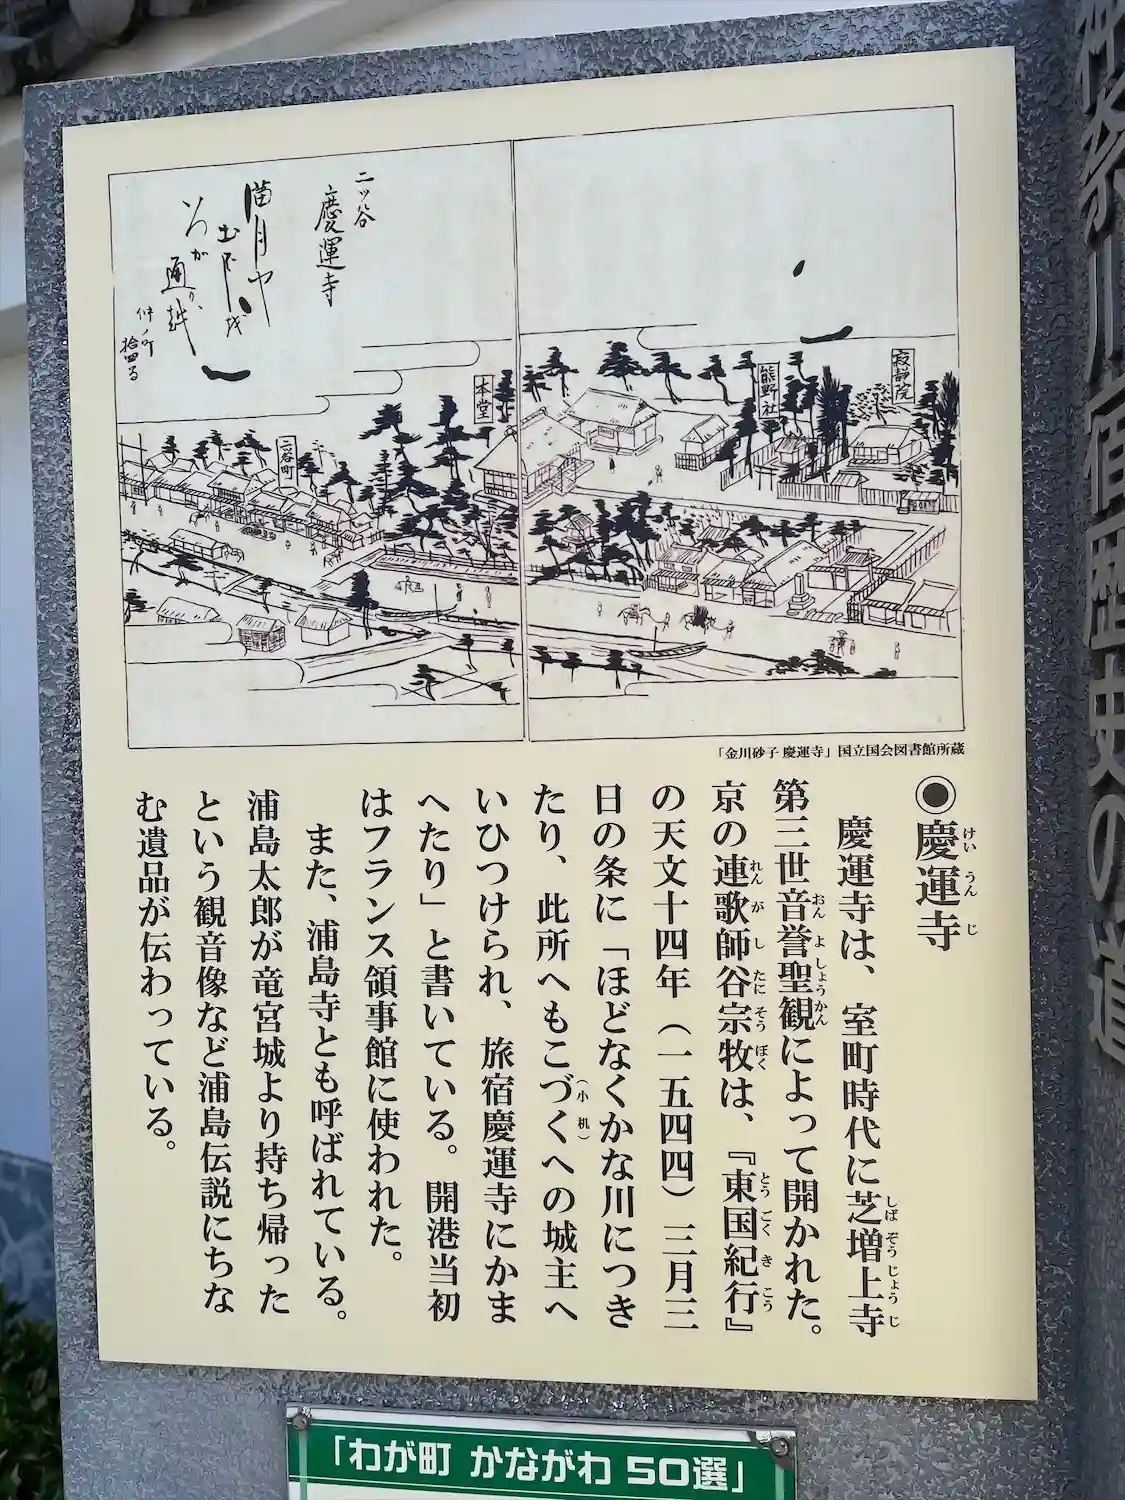 二ッ谷
慶運寺
満月や
通り
拾四
本堂
二ッ谷町
熊野社
寂静院
「金川砂子 慶運寺」国立国会図書館所蔵
◉慶運寺
けいうんじ
慶運寺は、室町時代に芝増上寺
しばぞうじょうじ
第三世音誉聖観によって開かれた。
おんよしょうかん
京の連歌師谷宗牧は、『東国紀行』
れんがしたにそうぼくとうごくきこう
の天文十四年（一五四四）三月三
日の条に「ほどなくかな川につき
たり、此所へもこづくへの城主へ
（小机）
いひつけられ、旅宿慶運寺にかま
へたり」と書いている。開港当初
はフランス領事館に使われた。
また、浦島寺とも呼ばれている。
浦島太郎が竜宮城より持ち帰った
という観音像など浦島伝説にちな
む遺品が伝わっている。
「わが町 かながわ 50選」
神奈川宿歴史の道